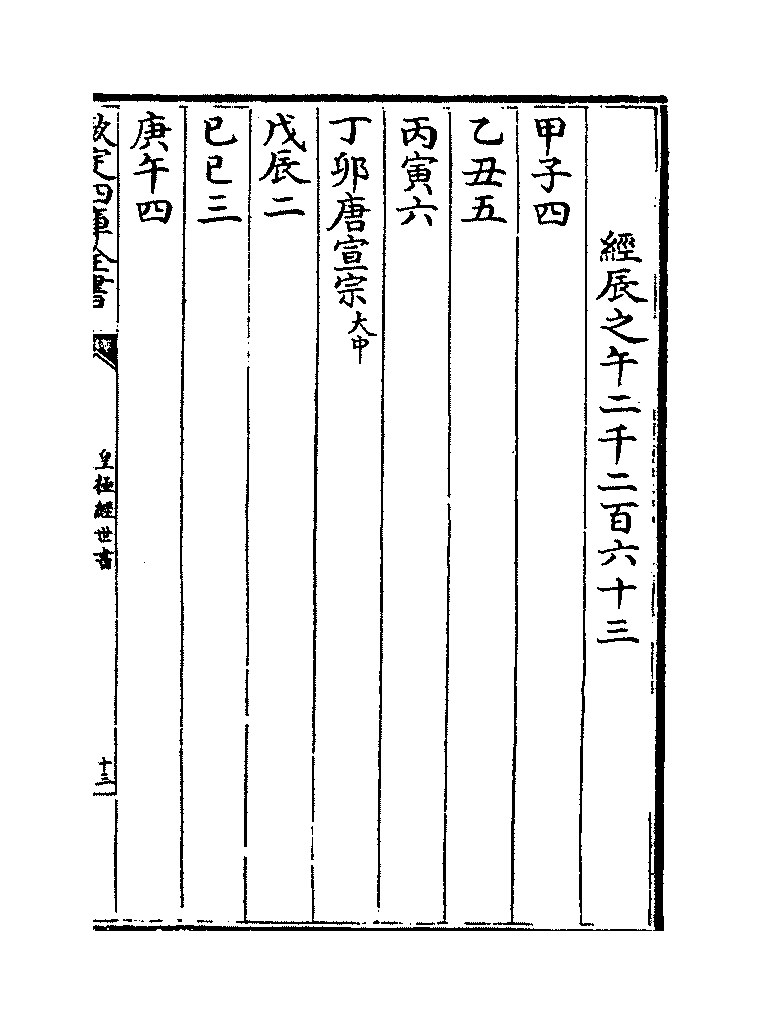 經辰之午二千二百六十三
甲子四
乙丑五
丙寅六
丁卯唐宣宗大中
戊辰二
己巳三
庚午四
欽定四庫全書
皇極經世書
十三